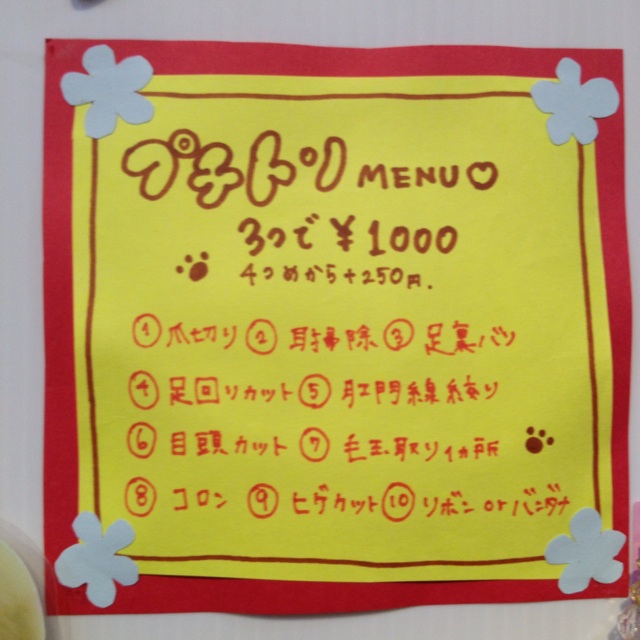 プチトリ MENU♡
3つで ¥1000
4つめから+250円.
①爪切り ②耳掃除 ③足裏バリ
④足回りカット ⑤肛門線絞り
⑥目頭カット ⑦毛玉取り1ヵ所
⑧コロン ⑨ヒゲカット ⑩リボン or バンダナ